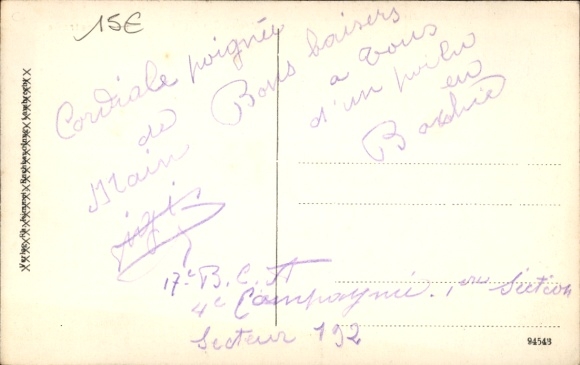 15€
Cordiale poignée
de
Main
Bons baisers
a vous
d'un poilu
en
Bochie
17e B.C.A
4e Compagnie. 1ere Section
Secteur 192
94543